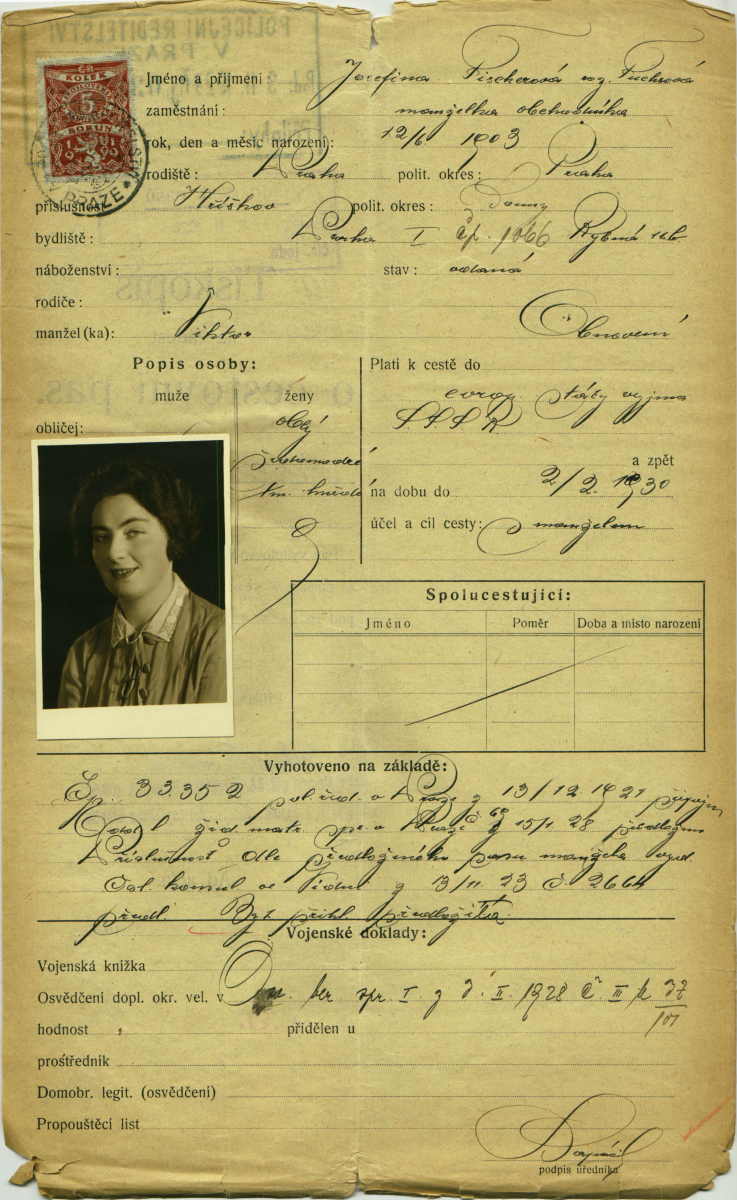 POLICEJNÍ ŘEDITELSTVÍ
V PRAZE
KOLEK
5
KORUN
PRAZE
Jméno a příjmení: Josefina Fischerová roz. Fuchsová
zaměstnání: manželka obchodníka
rok, den a měsíc narození: 12/6 1903
rodiště: Praha polit. okres: Praha
příslušnost polit. okres:
bydliště: Praha I čp. 1066 Rybná
náboženství: stav: vdaná
rodiče:
manžel (ka): Viktor Obnovení
Popis osoby: Platí k cestě do
muže ženy evrop. státy vyjma
obličej: oblý SSSR
a zpět
tm. hnědé na dobu do 2/2. 1930
účel a cíl cesty: s manželem
Spolucestující:
Jméno Poměr Doba a místo narození
Vyhotoveno na základě:
Čp. 33352 pol. řed. v Praze z 13/12 1921
žid. matr. v Praze z 15/1 28 předložen
Příslušnost dle předloženého pasu manžela vyd.
konsul ve Vídni z 13/11 23 č. 2664
předl. Byt. přihl. předložila.
Vojenské doklady:
Vojenská knížka
Osvědčení dopl. okr. vel. v ber. spr. I. z II. 1928 č. III
hodnost přidělen u
prostředník
Domobr. legit. (osvědčení)
Propouštěcí list
podpis úředníka